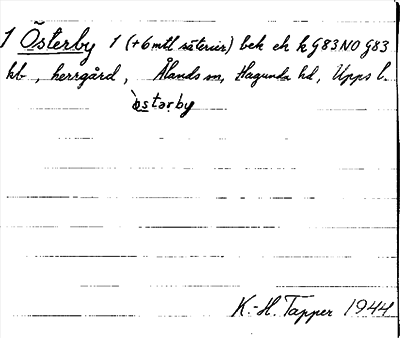 1 Österby 1 (+6 mtl säterier) bek ek k G83NO G83
kb, herrgård, Ålands sn, Hagunda hd, Upps l.
òstarby
K.-H. Tapper 1944